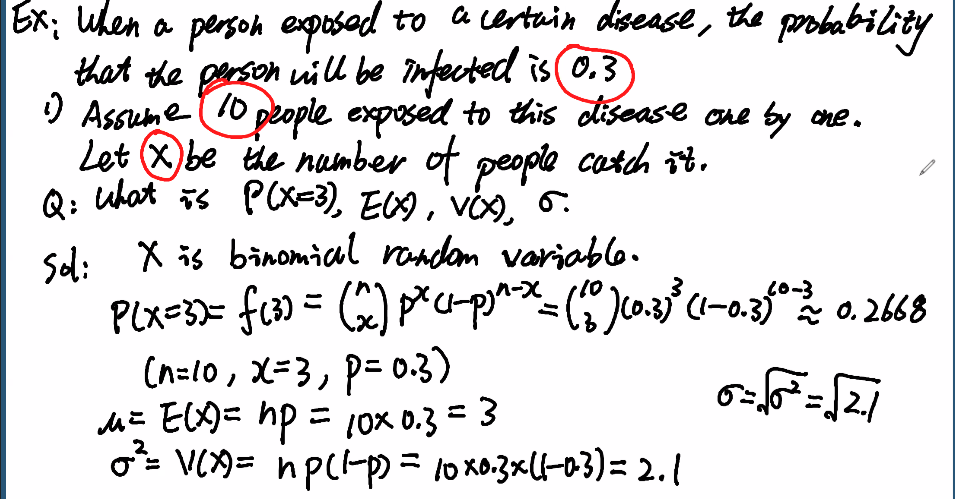 Ex: When a person exposed to a certain disease, the probability
that the person will be infected is 0.3
1) Assume 10 people exposed to this disease one by one.
Let X be the number of people catch it.
Q: What is P(X=3), E(X), V(X), σ.
Sol: X is binomial random variable.
P(X=3)= f(3) = (n x) p^x (1-p)^{n-x} = (10 3)(0.3)^3 (1-0.3)^{10-3} ≈ 0.2668
(n=10, x=3, p=0.3)
μ = E(X) = np = 10×0.3 = 3
σ=√σ²=√2.1
σ² = V(X) = np(1-p) = 10×0.3×(1-0.3) = 2.1